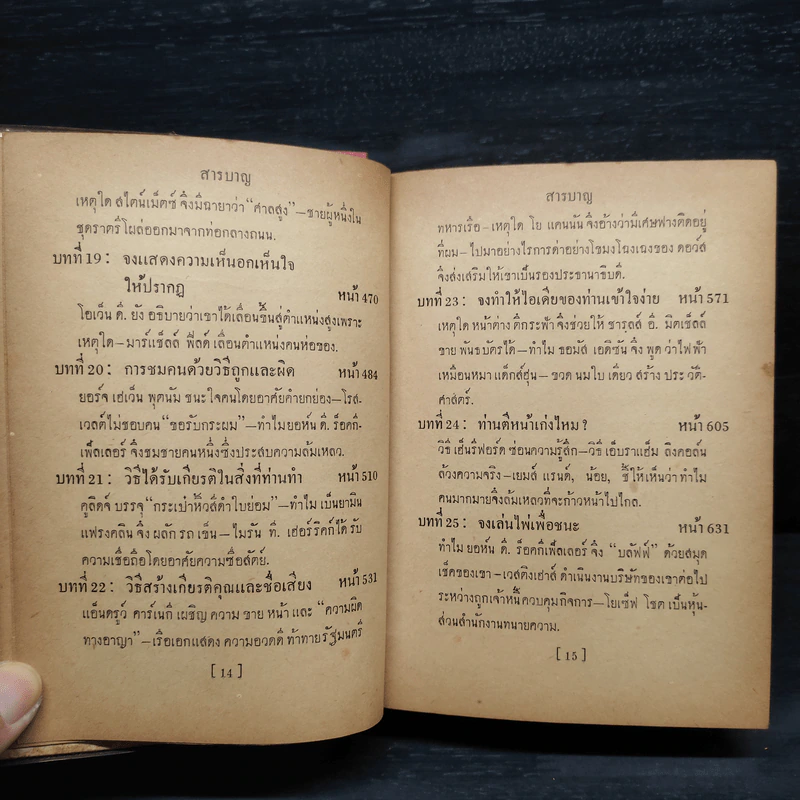 สารบาญ
เหตุใด สไตน์เม็ตซ์ จึงมีฉายาว่า “ศาลสูง”—ชายผู้หนึ่งใน
ชุดราตรีโผล่ออกมาจากท่อกลางถนน.
บทที่ 19 : จงแสดงความเห็นอกเห็นใจ
ให้ปรากฏ หน้า 470
โอเว็น ดี. ยัง อธิบายว่าเขาได้เลื่อนขึ้นสู่ตำแหน่งสูงเพราะ
เหตุใด—มาร์แช็ลล์ ฟีลด์ เลื่อนตำแหน่งคนห่อของ.
บทที่ 20 : การชมคนด้วยวิธีถูกและผิด หน้า 484
ยอร์จ เฮเว็น พุตนัม ชนะใจคนโดยอาศัยคำยกย่อง—โรส-
เวลต์ไม่ชอบคน “ขอรับกระผม”—ทำไมยอห์น ดี. ร็อคกี้-
เฟ็ลเลอร์ จึงชมชายคนหนึ่งซึ่งประสบความล้มเหลว.
บทที่ 21 : วิธีได้รับเกียรติในสิ่งที่ท่านทำ หน้า 510
คูลิดจ์ บรรจุ “กระเป๋าหิ้วสีดำใบย่อม”—ทำไม เบ็นยามิน
แฟรงคลิน จึง ผลัก รถ เข็น—ไมรัน ที. เฮอร์ริคก์ได้ รับ
ความเชื่อถือโดยอาศัยความซื่อสัตย์.
บทที่ 22 : วิธีสร้างเกียรติคุณและชื่อเสียง หน้า 531
แอ็นดรูว์ คาร์เนกี เผชิญ ความ ขาย หน้า และ “ความผิด
ทางอาญา”—เรือเอกแสดง ความอวดดี ท้าทาย รัฐมนตรี
[ 14 ]
สารบาญ
ทหารเรือ—เหตุใด โย แคนนัน จึงอ้างว่ามีเศษฟางติดอยู่
ที่ผม—ไปมาอย่างไรการด่าอย่างโขมงโฉงเฉงของ ดอว์ส์
จึงส่งเสริมให้เขาเป็นรองประธานาธิบดี.
บทที่ 23 : จงทำให้ไอเดียของท่านเข้าใจง่าย หน้า 571
เหตุใด หน้าต่าง ติ๊กระฟ้า จึงช่วยให้ ชาร์ลส์ อี. มิตเช็ลล์
ขาย พันธบัตรได้—ทำไม ธอมัส เอดิซัน จึง พูด ว่าไฟฟ้า
เหมือนหมา แด็กส์ฮุ่น—ขวด นมใบ เดียว สร้าง ประ วัติ-
ศาสตร์.
บทที่ 24 : ท่านตีหน้าเก่งไหม ? หน้า 605
วิธี เฮ็นรี่ฟอร์ด ซ่อนความรู้สึก—วิธี เอ็บราแฮ็ม ลิงคอล์น
ล้วงความจริง—เยมส์ แรนด์, น้อย, ชี้ให้เห็นว่าทำไม
คนมากมายจึงล้มเหลวที่จะก้าวหน้าไปไกล.
บทที่ 25 : จงเล่นไพ่เพื่อชนะ หน้า 631
ทำไม ยอห์น ดี. ร็อคกี้เฟ็ลเลอร์ จึง “บลัฟฟ์” ด้วยสมุด
เช็คของเขา—เวสติงเฮ้าส์ ดำเนินงานบริษัทของเขาต่อไป
ระหว่างถูกเจ้าหนี้ควบคุมกิจการ—โยเซ็ฟ โชต เป็นหุ้น-
ส่วนสำนักงานทนายความ.
[ 15 ]